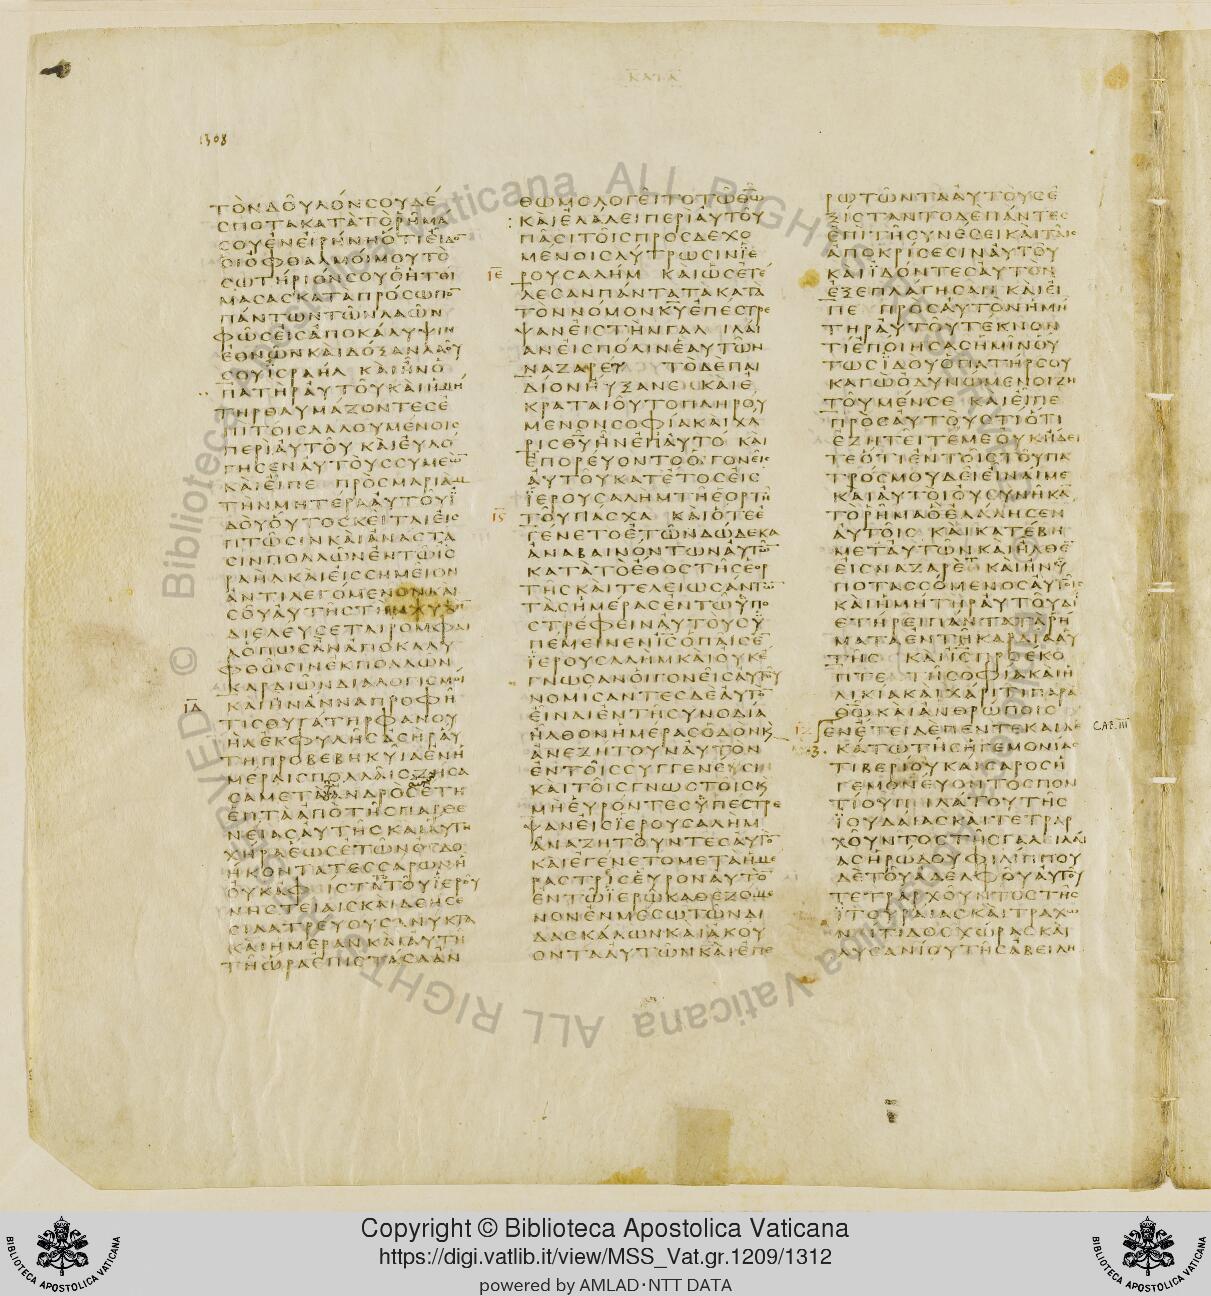 ΚΑΤΑ
1308
ΤΟΝΔΟΥΛΟΝΣΟΥΔΕ
ΣΠΟΤΑΚΑΤΑΤΟΡΗΜΑ
ΣΟΥΕΝΕΙΡΗΝΗΟΤΙΕΙΔΟ
ΟΙΟΦΘΑΛΜΟΙΜΟΥΤΟ
ΣΩΤΗΡΙΟΝΣΟΥΟΗΤΟΙ
ΜΑΣΑΣΚΑΤΑΠΡΟΣΩΠΟ
ΠΑΝΤΩΝΤΩΝΛΑΩΝ
ΦΩΣΕΙΣΑΠΟΚΑΛΥΨΙΝ
ΕΘΝΩΝΚΑΙΔΟΞΑΝΛΑΟΥ
ΣΟΥΙΣΡΑΗΛ ΚΑΙΗΝΟ
ΠΑΤΗΡΑΥΤΟΥΚΑΙΗΜΗ
ΤΗΡΘΑΥΜΑΖΟΝΤΕΣΕ
ΠΙΤΟΙΣΛΑΛΟΥΜΕΝΟΙΣ
ΠΕΡΙΑΥΤΟΥ ΚΑΙΕΥΛΟ
ΓΗΣΕΝΑΥΤΟΥΣΣΥΜΕΩ
ΚΑΙΕΙΠΕ ΠΡΟΣΜΑΡΙΑΜ
ΤΗΝΜΗΤΕΡΑΑΥΤΟΥΙ
ΔΟΥΟΥΤΟΣΚΕΙΤΑΙΕΙΣ
ΠΤΩΣΙΝΚΑΙΑΝΑΣΤΑ
ΣΙΝΠΟΛΛΩΝΕΝΤΩΙΣ
ΡΑΗΛΚΑΙΕΙΣΣΗΜΕΙΟΝ
ΑΝΤΙΛΕΓΟΜΕΝΟΝΚΑΙ
ΣΟΥΑΥΤΗΣΤΗΝΨΥΧΗ
ΔΙΕΛΕΥΣΕΤΑΙΡΟΜΦΑΙ
ΑΟΠΩΣΑΝΑΠΟΚΑΛΥ
ΦΘΩΣΙΝΕΚΠΟΛΛΩΝ
ΚΑΡΔΙΩΝΔΙΑΛΟΓΙΣΜΟΙ
ΙΔ ΚΑΙΗΝΑΝΝΑΠΡΟΦΗ
ΤΙΣΘΥΓΑΤΗΡΦΑΝΟΥ
ΗΛΕΚΦΥΛΗΣΑΣΗΡΑΥ
ΤΗΠΡΟΒΕΒΗΚΥΙΑΕΝΗ
ΜΕΡΑΙΣΠΟΛΛΑΙΣΖΗΣΑ
ΣΑΜΕΤΑΑΝΔΡΟΣΕΤΗ
ΕΠΤΑΑΠΟΤΗΣΠΑΡΘΕ
ΝΕΙΑΣΑΥΤΗΣΚΑΙΑΥΤΗ
ΧΗΡΑΕΩΣΕΤΩΝΟΓΔΟ
ΗΚΟΝΤΑΤΕΣΣΑΡΩΝΗ
ΟΥΚΑΦΙΣΤΑΤΟΤΟΥΙΕΡΟΥ
ΝΗΣΤΕΙΑΙΣΚΑΙΔΕΗΣΕ
ΣΙΛΑΤΡΕΥΟΥΣΑΝΥΚΤΑ
ΚΑΙΗΜΕΡΑΝΚΑΙΑΥΤΗ
ΤΗΩΡΑΕΠΙΣΤΑΣΑΑΝ
ΘΩΜΟΛΟΓΕΙΤΟΤΩΘΩ
ΚΑΙΕΛΑΛΕΙΠΕΡΙΑΥΤΟΥ
ΠΑΣΙΤΟΙΣΠΡΟΣΔΕΧΟ
ΜΕΝΟΙΣΛΥΤΡΩΣΙΝΙΕ
ΙΕ ΡΟΥΣΑΛΗΜ ΚΑΙΩΣΕΤΕ
ΛΕΣΑΝΠΑΝΤΑΤΑΚΑΤΑ
ΤΟΝΝΟΜΟΝΚΥΕΠΕΣΤΡΕ
ΨΑΝΕΙΣΤΗΝΓΑΛΙΛΑΙ
ΑΝΕΙΣΠΟΛΙΝΕΑΥΤΩΝ
ΝΑΖΑΡΕΤ ΤΟΔΕΠΑΙ
ΔΙΟΝΗΥΞΑΝΕΚΑΙΕ
ΚΡΑΤΑΙΟΥΤΟΠΛΗΡΟΥ
ΜΕΝΟΝΣΟΦΙΑΚΑΙΧΑ
ΡΙΣΘΥΗΝΕΠΑΥΤΟ ΚΑΙ
ΕΠΟΡΕΥΟΝΤΟΟΙΓΟΝΕΙΣ
ΑΥΤΟΥΚΑΤΕΤΟΣΕΙΣ
ΙΕΡΟΥΣΑΛΗΜΤΗΕΟΡΤΗ
ΙϚ ΤΟΥΠΑΣΧΑ ΚΑΙΟΤΕΕ
ΓΕΝΕΤΟΕΤΩΝΔΩΔΕΚΑ
ΑΝΑΒΑΙΝΟΝΤΩΝΑΥΤΩ
ΚΑΤΑΤΟΕΘΟΣΤΗΣΕΟΡ
ΤΗΣΚΑΙΤΕΛΕΙΩΣΑΝΤΩ
ΤΑΣΗΜΕΡΑΣΕΝΤΩΥΠΟ
ΣΤΡΕΦΕΙΝΑΥΤΟΥΣΥ
ΠΕΜΕΙΝΕΝΙΣΟΠΑΙΣΕ
ΙΕΡΟΥΣΑΛΗΜΚΑΙΟΥΚΕ
ΓΝΩΣΑΝΟΙΓΟΝΕΙΣΑΥΤΟΥ
ΝΟΜΙΣΑΝΤΕΣΔΕΑΥΤΟ
ΕΙΝΑΙΕΝΤΗΣΥΝΟΔΙΑ
ΗΛΘΟΝΗΜΕΡΑΣΟΔΟΝΚ
ΑΝΕΖΗΤΟΥΝΑΥΤΟΝ
ΕΝΤΟΙΣΣΥΓΓΕΝΕΥΣΙ
ΚΑΙΤΟΙΣΓΝΩΣΤΟΙΣΚ
ΜΗΕΥΡΟΝΤΕΣΥΠΕΣΤΡΕ
ΨΑΝΕΙΣΙΕΡΟΥΣΑΛΗΜ
ΑΝΑΖΗΤΟΥΝΤΕΣΑΥΤΟ
ΚΑΙΕΓΕΝΕΤΟΜΕΤΑΗΜΕ
ΡΑΣΤΡΙΣΕΥΡΟΝΑΥΤΟ
ΕΝΤΩΙΕΡΩΚΑΘΕΖΟΜΕ
ΝΟΝΕΝΜΕΣΩΤΩΝΔΙ
ΔΑΣΚΑΛΩΝΚΑΙΑΚΟΥ
ΟΝΤΑΑΥΤΩΝΚΑΙΕΠΕ
ΡΩΤΩΝΤΑΑΥΤΟΥΣΕ
ΞΙΣΤΑΝΤΟΔΕΠΑΝΤΕΣ
ΕΠΙΤΗΣΥΝΕΣΕΙΚΑΙΤΑΙΣ
ΑΠΟΚΡΙΣΕΣΙΝΑΥΤΟΥ
ΚΑΙΙΔΟΝΤΕΣΑΥΤΟΝ
ΕΞΕΠΛΑΓΗΣΑΝ ΚΑΙΕΙ
ΠΕ ΠΡΟΣΑΥΤΟΝΗΜΗ
ΤΗΡΑΥΤΟΥΤΕΚΝΟΝ
ΤΙΕΠΟΙΗΣΑΣΗΜΙΝΟΥ
ΤΩΣΙΔΟΥΟΠΑΤΗΡΣΟΥ
ΚΑΓΩΟΔΥΝΩΜΕΝΟΙΖΗ
ΤΟΥΜΕΝΣΕ ΚΑΙΕΙΠΕ
ΠΡΟΣΑΥΤΟΥΣΤΙΟΤΙ
ΕΖΗΤΕΙΤΕΜΕΟΥΚΗΔΕΙ
ΤΕΟΤΙΕΝΤΟΙΣΤΟΥΠΑ
ΤΡΟΣΜΟΥΔΕΙΕΙΝΑΙΜΕ
ΚΑΙΑΥΤΟΙΟΥΣΥΝΗΚΑ
ΤΟΡΗΜΑΟΕΛΑΛΗΣΕΝ
ΑΥΤΟΙΣ ΚΑΙΚΑΤΕΒΗ
ΜΕΤΑΥΤΩΝΚΑΙΗΛΘΕ
ΕΙΣΝΑΖΑΡΕΤΚΑΙΗΝΥ
ΠΟΤΑΣΣΟΜΕΝΟΣΑΥΤΟΙΣ
ΚΑΙΗΜΗΤΗΡΑΥΤΟΥΔΙ
ΕΤΗΡΕΙΠΑΝΤΑΤΑΡΗ
ΜΑΤΑΕΝΤΗΚΑΡΔΙΑΑΥ
ΤΗΣ ΚΑΙΙΣΠΡΟΕΚΟ
ΠΤΕ ΤΗΣΟΦΙΑΚΑΙΗ
ΛΙΚΙΑΚΑΙΧΑΡΙΤΙΠΑΡΑ
ΘΩΚΑΙΑΝΘΡΩΠΟΙΣ
ΙΖ ΕΝΕΤΕΙΔΕΠΕΝΤΕΚΑΙΔΕ CAP.III
3. ΚΑΤΩΤΗΣΗΓΕΜΟΝΙΑΣ
ΤΙΒΕΡΙΟΥΚΑΙΣΑΡΟΣΗ
ΓΕΜΟΝΕΥΟΝΤΟΣΠΟΝ
ΤΙΟΥΠΙΛΑΤΟΥΤΗΣ
ΙΟΥΔΑΙΑΣΚΑΙΤΕΤΡΑΡ
ΧΟΥΝΤΟΣΤΗΣΓΑΛΙΛΑΙ
ΑΣΗΡΩΔΟΥΦΙΛΙΠΠΟΥ
ΔΕΤΟΥΑΔΕΛΦΟΥΑΥΤΟΥ
ΤΕΤΡΑΡΧΟΥΝΤΟΣΤΗΣ
ΙΤΟΥΡΑΙΑΣΚΑΙΤΡΑΧΩ
ΝΙΤΙΔΟΣΧΩΡΑΣΚΑΙ
ΛΥΣΑΝΙΟΥΤΗΣΑΒΕΙΛΗ
© Biblioteca Apostolica Vaticana ALL RIGHTS RESERVED
BIBLIOTECA APOSTOLICA VATICANA
Copyright © Biblioteca Apostolica Vaticana
https://digi.vatlib.it/view/MSS_Vat.gr.1209/1312
powered by AMLAD·NTT DATA
BIBLIOTECA APOSTOLICA VATICANA